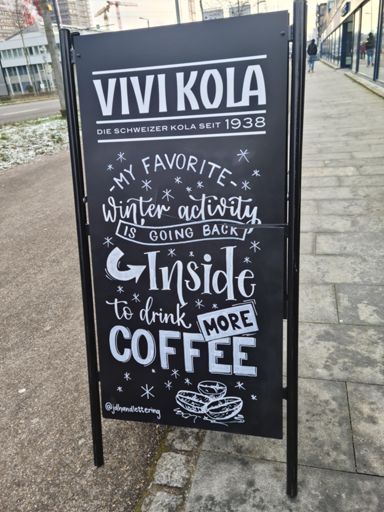 VIVI KOLA
DIE SCHWEIZER KOLA SEIT 1938
MY FAVORITE
winter activity
IS GOING BACK
Inside
to drink MORE
COFFEE
@jdhandlettering